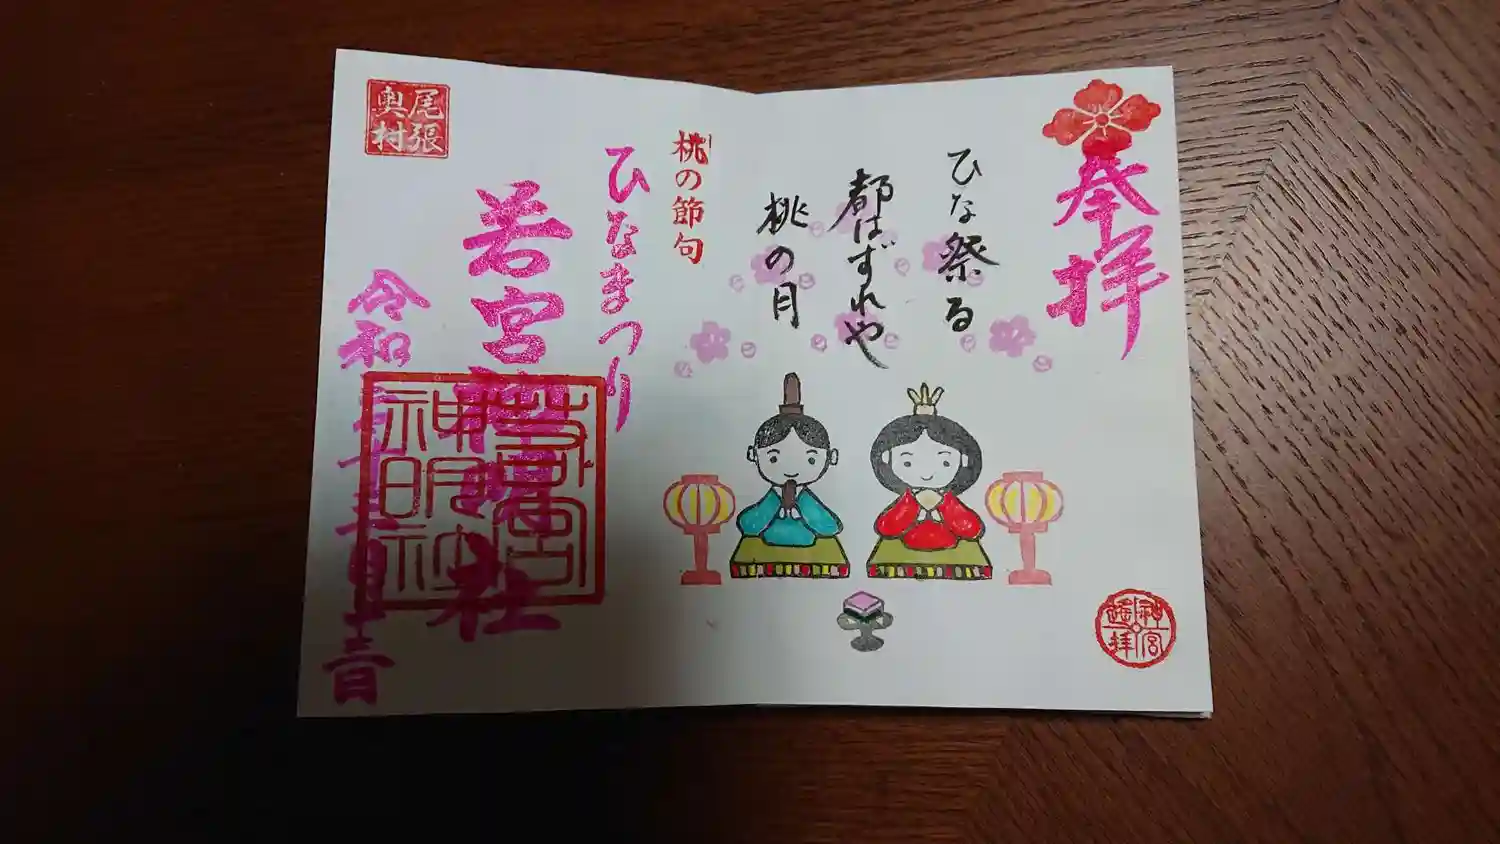 奉拝
ひな祭る
都はずれや
桃の月
桃の節句
ひなまつり
若宮神明社
令和
三月
尾張
奥村
若宮
神明社
神宮
遙拝